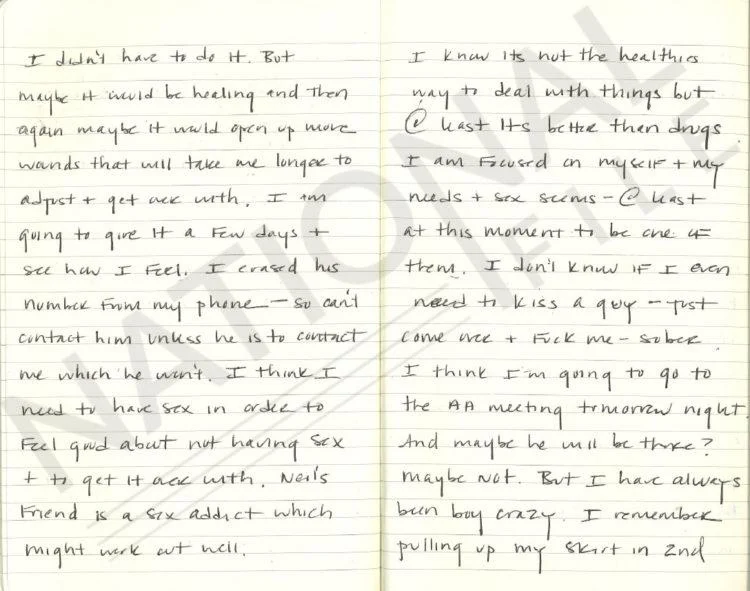 I didn't have to do it. But
maybe it would be healing and then
again maybe it would open up more
wounds that will take me longer to
adjust + get over with. I am
going to give it a few days +
see how I feel. I erased his
number from my phone - so can't
contact him unless he is to contact
me which he won't. I think I
need to have sex in order to
feel good about not having sex
+ to get it over with. Neil's
Friend is a sex addict which
might work out well.
I know its not the healthies
way to deal with things but
@ least its better than drugs.
I am focused on myself + my
needs + sex seems - @ least
at this moment to be one of
them. I don't know if I even
need to kiss a guy - just
come over + fuck me - sober.
I think I'm going to go to
the AA meeting tomorrow night.
And maybe he will be there?
maybe not. But I have always
been boy crazy. I remember
pulling up my skirt in 2nd
NATIONAL
FILE